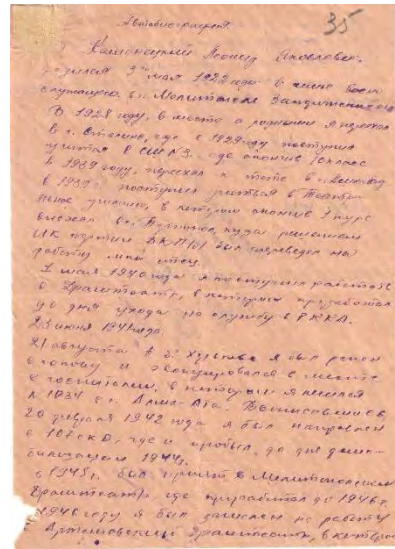 Автобиография.
35
Я Каменецкий Леонид Яковлевич.
родился 3го мая 1922 года в семье
служащего в г. Мелитополе
В 1928 году, в место с родными я переехал
в г. Сталино, где в 1929 году поступил
учиться в СШ где окончив класс
в 1939 году, переехал к тете в г.
в 1939 г. поступил учиться в
училище, в котором окончив курс
выехал в г. куда решением
ЦК партии ВКП(б) был переведен на
работу мой отец.
1 мая 1940 года я поступил работать
в Драмтеатр, в котором проработал
до дня ухода на службу в РККА.
23 июня 1941 года.
21 августа в г. Харькове я был ранен
в голову и эвакуировался с места
в госпиталь, в котором я лечился
N 1034 в г. Алма-Ата. Выписавшись
20 февраля 1942 года я был направлен
в 107 где и пробыл, до дня
1944 г.
в 1945 г. был принят в Мелитопольский
Драмтеатр, где проработал до 1946 г.
1946 году я был на работу
в Артемовский Драмтеатр, в котором